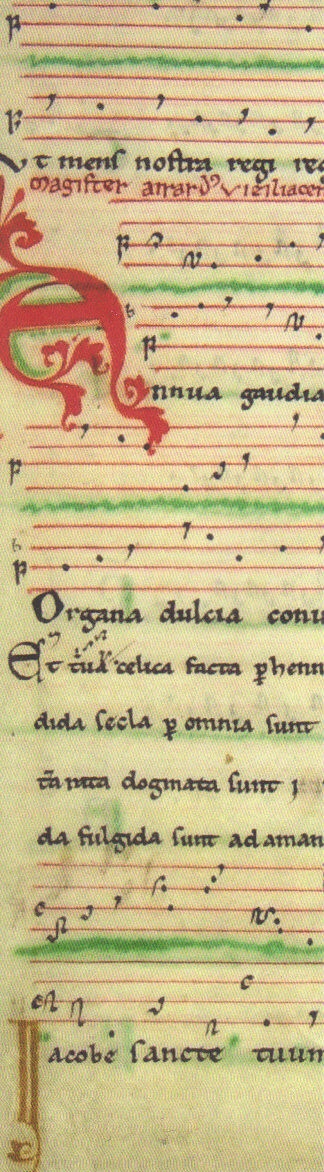 Vt menſ noſtra regi reg
magiſter airardꝰ viziliacen
Annua gaudia
Organa dulcia conu
Et tua celica facta ꝑhenn
dida ſecla ꝑ omnia ſunt
dogmata ſunt
da fulgida ſunt ad aman
Iacobe ſancte tuum